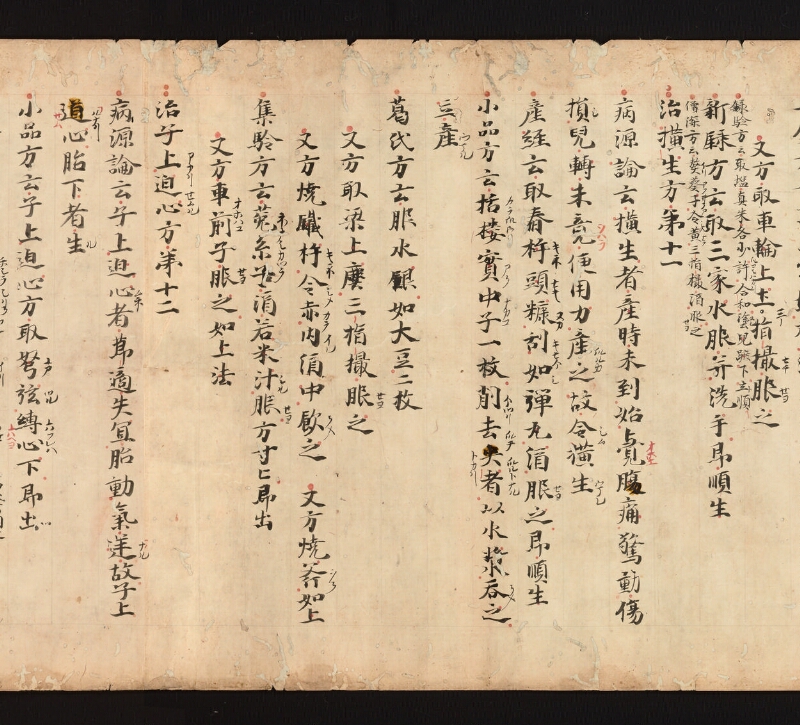 又方取車輪上土三指撮服之
録驗方云取塩真朱各少許合和塗兒蹠下立順
新録方云取三家水服并洗手即順生
僧深方云葵子令黄三指撮酒服之
治横生方第十一
病源論云横生者産時未到始覺腹痛驚動傷
損兒轉未竟便用力産之故令横生
産經云取舂杵頭糠刮如彈丸酒服之即順生
小品方云栝樓實中子一枚削去尖者以水漿吞之
立産
葛氏方云服水銀如大豆二枚
又方取梁上塵三指撮服之
又方燒鐵杵令赤内酒中飲之 又方燒斧如上
集驗方云菟糸子酒若米汁服方寸匕即出
又方車前子服之如上法
治子上迫心方第十二
病源論云子上迫心者
適失宜胎動氣逆故子上
迫心胎下者生
小品方云子上迫心方取弩弦縛心下即出